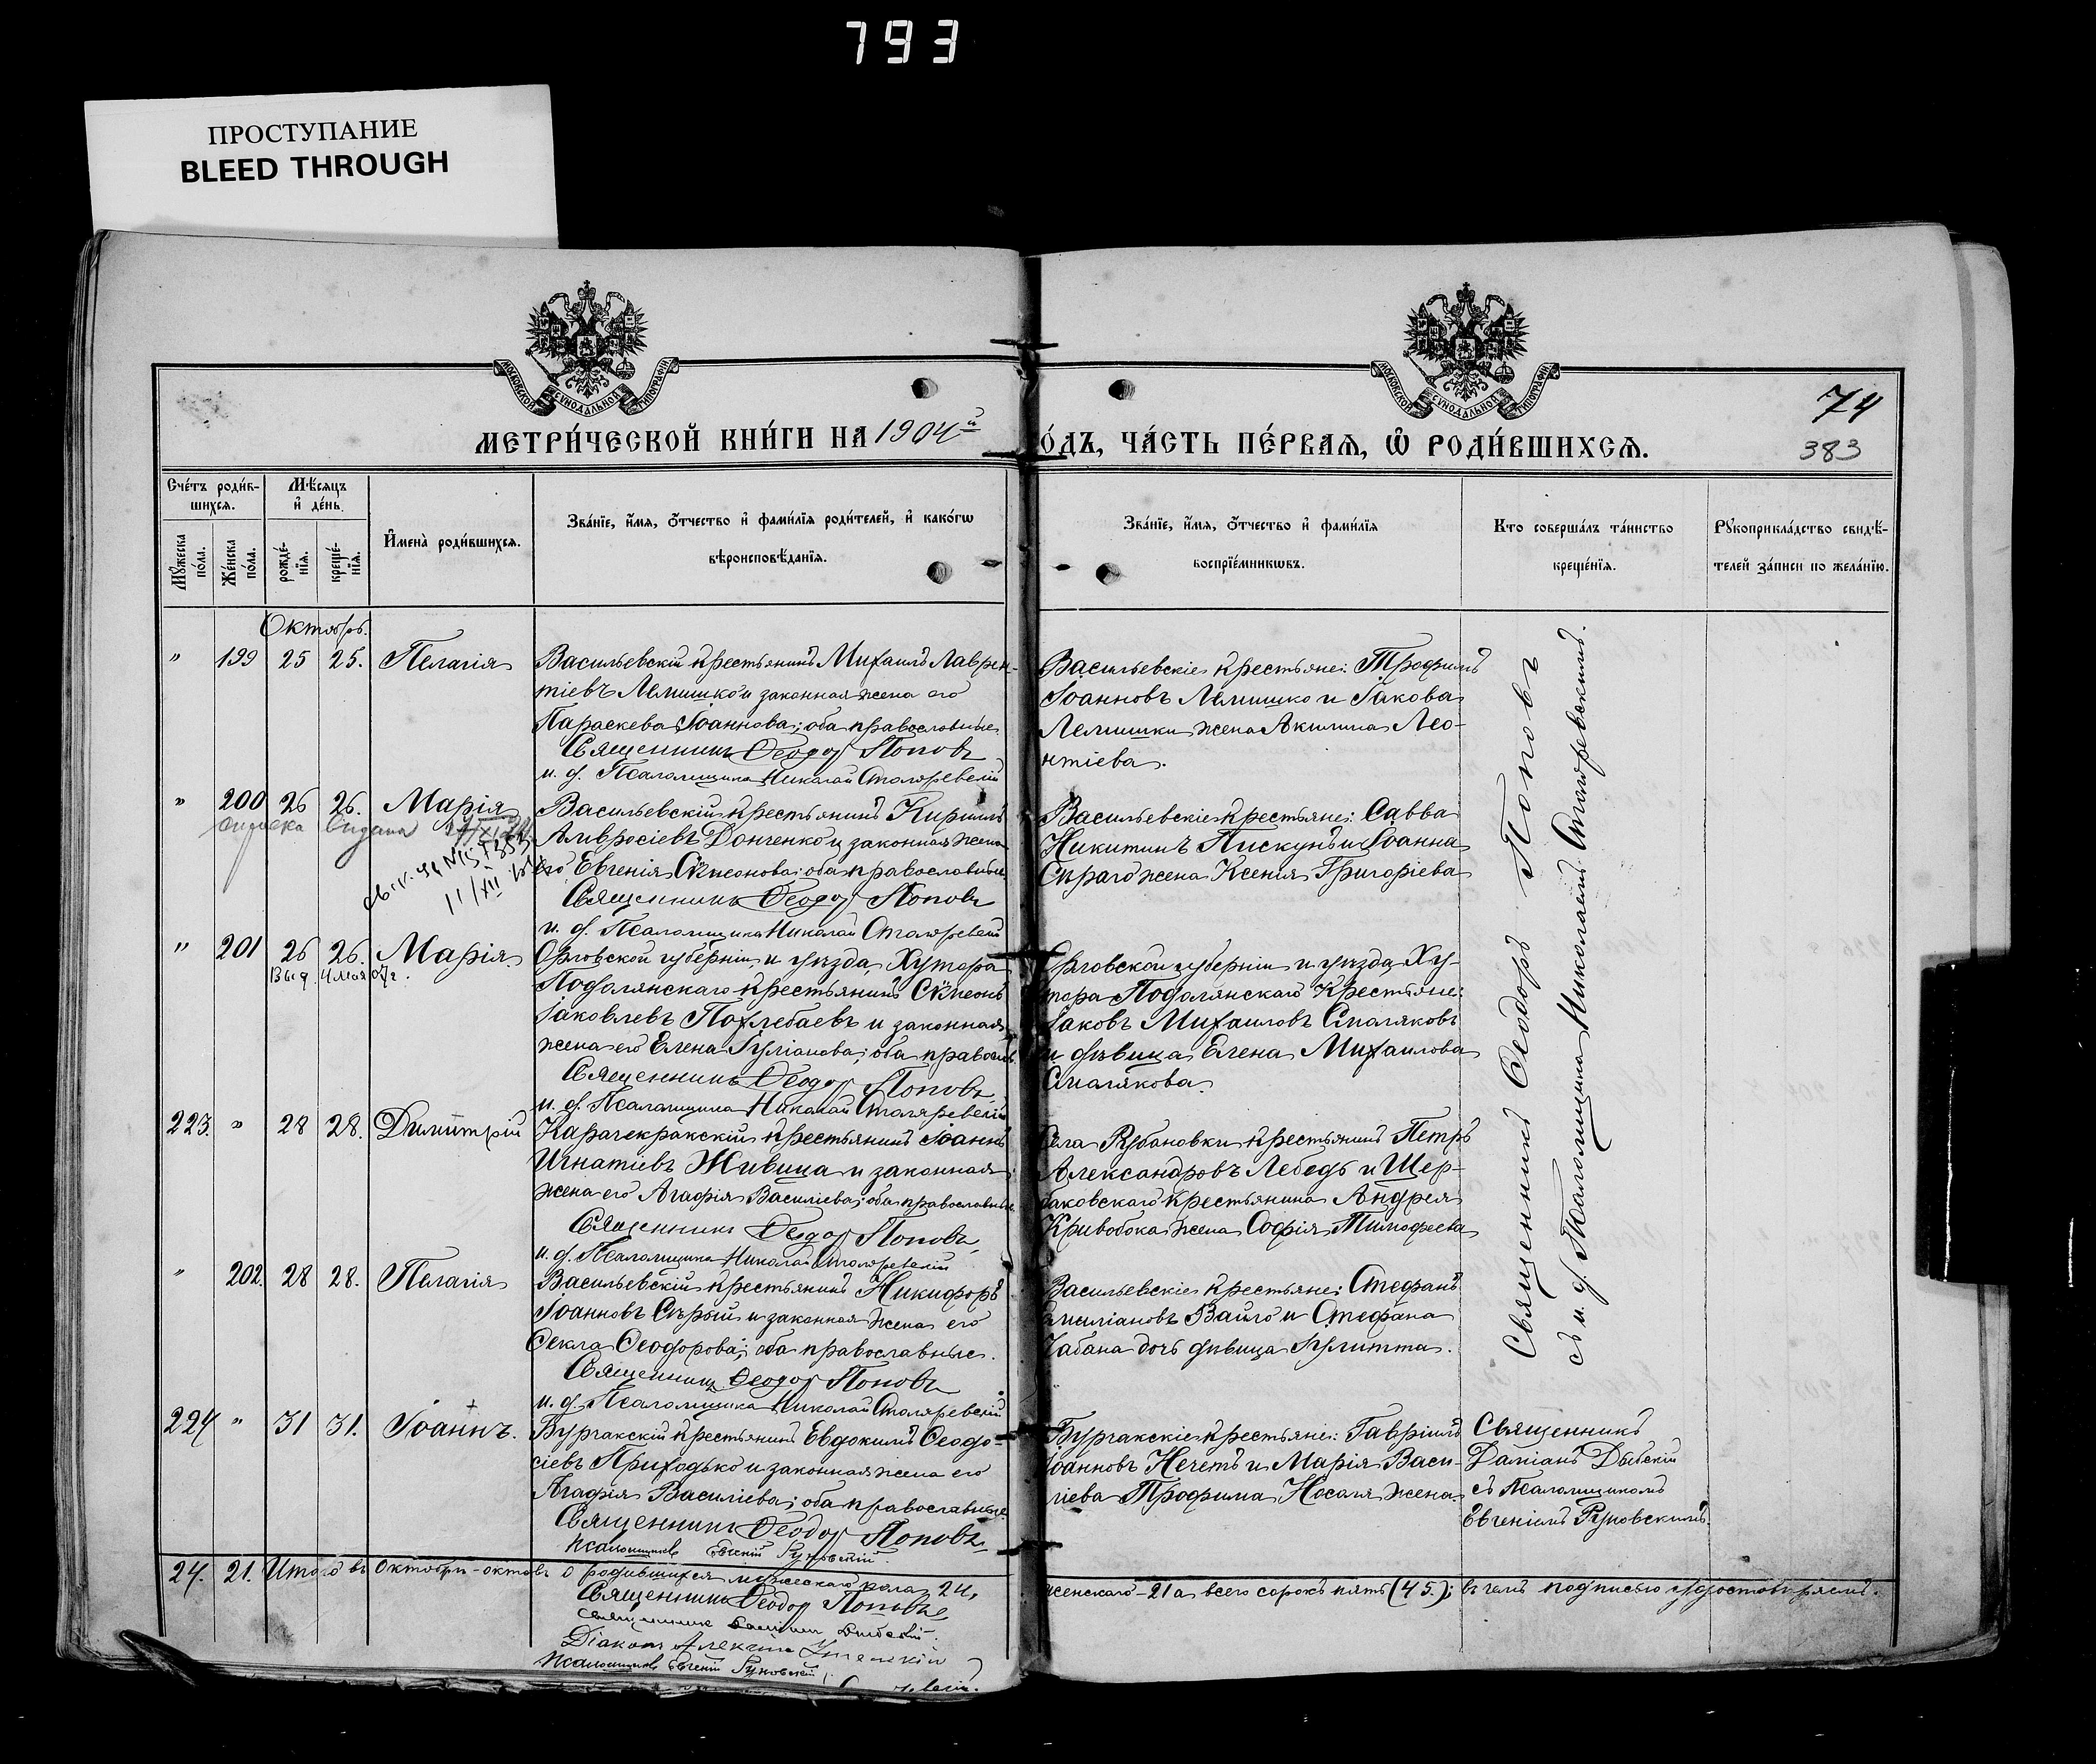 793
ПРОСТУПАНИЕ
BLEED THROUGH
МОСКОВСКОЙ СѴНОДАЛЬНОЙ ТИПОГРАФІИ
МОСКОВСКОЙ СѴНОДАЛЬНОЙ ТИПОГРАФІИ
74
383
МЕТРИ́ЧЕСКОЙ КНИ́ГИ НА 1904й
О́ДЪ, ЧА́СТЬ ПЕ́РВАѦ, Ѡ РОДИ́ВШИХСѦ.
Сче́тъ роди́в-
шихсѧ.
Мѣ́сѧцъ
и҆ де́нь.
Мꙋ́жеска по́ла.
Же́нска по́ла.
рожде́-нїѧ.
креще́-нїѧ.
И҆мена̀ роди́вшихсѧ.
Зва́нїе, и҆́мѧ, ѻ҆́тчество и҆ фами́лїѧ роди́телей, и҆ како́гѡ
вѣроисповѣ́данїѧ.
Зва́нїе, и҆́мѧ, ѻ҆́тчество и҆ фами́лїѧ
воспрїе́мникѡвъ.
Кто соверша́лъ та́инство
креще́нїѧ.
Рꙋкоприкла́дство свидѣ́-
телей за́писи по жела́нїю.
Октябрь.
" 199 25 25. Пелагія
Васильевскій крестьянинъ Михаилъ Лаврен-
тіевъ Лемишко и законная жена его
Параскева Іоаннова; оба православные
Священникъ Ѳеодор Поповъ
и. д. Псаломщика Николай Столяревскій
Васильевскіе крестьяне: Трофимъ
Іоанновъ Лемишко и Іакова
Лемишки жена Акилина Лео-
нтіева.
" 200 26 26. Марія
справка выдана
11/XII
Васильевскій крестьянинъ Кириллъ
Амвросіевъ Донченко и законная жена
его Евгенія Сѵмеонова; оба православные
Священникъ Ѳеодор Поповъ
и. д. Псаломщика Николай Столяревскій
Васильевскіе крестьяне: Савва
Никитинъ Пискунъ и Іоанна
Сѣраго жена Ксенія Григоріева
" 201 26 26. Марія.
Выд. 4 мая 07г.
Орловской губерніи и уѣзда Хутора
Подолянскаго крестьянинъ Сѵмеонъ
Іаковлевъ Похлебаевъ и законная
жена его Елена Іуліанова; оба правосл.
Священникъ Ѳеодор Поповъ
и. д. Псаломщика Николай Столяревскій
Орловской губерніи и уѣзда Ху-
тора Подолянскаго крестьяне:
Іаковъ Михаиловъ Смаляковъ
и дѣвица Елена Михаилова
Смалякова.
223. " 28 28. Димитрій
Карачекракскій крестьянинъ Іоаннъ
Игнатіевъ Живица и законная
жена его Агафія Василіева; оба православные
Священникъ Ѳеодор Поповъ
и. д. Псаломщика Николай Столяревскій
Села Рубановки крестьянинъ Петръ
Александровъ Лебедь и Щер-
баковскаго крестьянина Андрея
Кривобока жена Софія Тимофеева
" 202. 28 28. Пелагія
Васильевскій крестьянинъ Никифоръ
Іоанновъ Сѣрый и законная жена его
Ѳекла Ѳеодорова; оба православные.
Священникъ Ѳеодор Поповъ
и. д. Псаломщика Николай Столяревскій
Васильевскіе крестьяне: Стефанъ
Емиліановъ Вайло и Стефана
Чабана дочь дѣвица Іулитта.
Священникъ Ѳеодоръ Поповъ
съ и. д. Псаломщика Николаемъ Столяревскимъ.
224 " 31 31. Іоаннъ.
Бурчакскій крестьянинъ Евдокимъ Ѳеодо-
сіевъ Приходько и законная жена его
Агафія Василіева; оба православные
Священникъ Ѳеодор Поповъ
псаломщикъ Евгеній Руновскій.
Бурчакскіе крестьяне: Гавріилъ
Іоанновъ Нечетъ и Марія Васи-
ліева Трофима Носаля жена.
Священникъ
Даміанъ Дывскій
съ псаломщикомъ
Евгеніемъ Руновскимъ.
24. 21. Итого въ октябрѣ родившихся мужескаго пола 24,
женскаго - 21 а всего сорокъ пять (45); въ чемъ подписью удостовѣряемъ.
Священникъ Ѳеодор Поповъ
священникъ
Діаконъ
псаломщикъ Евгеній Руновскій